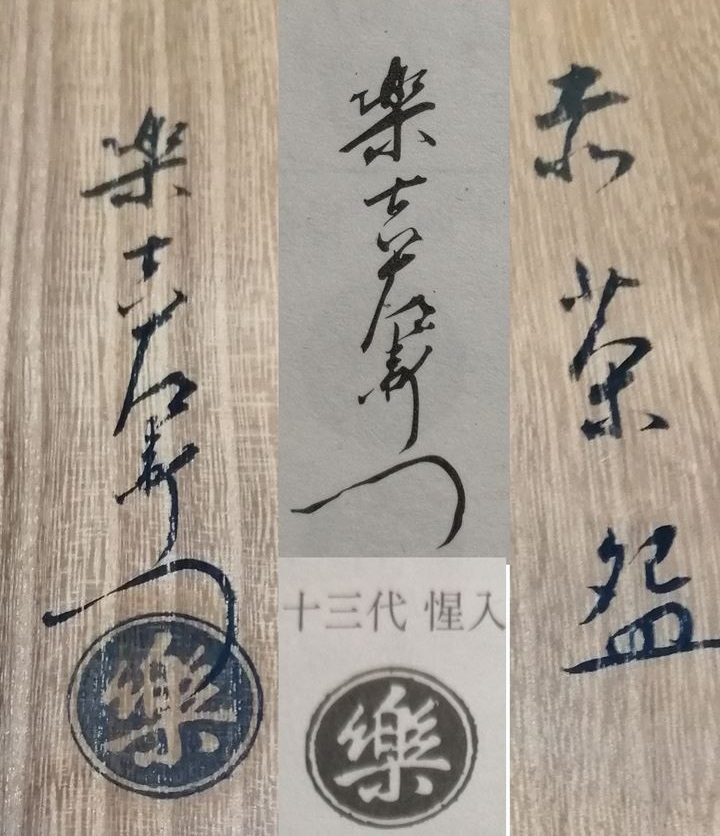 赤茶盌
樂吉左衛門
樂
樂吉左衛門
十三代 惺入
樂